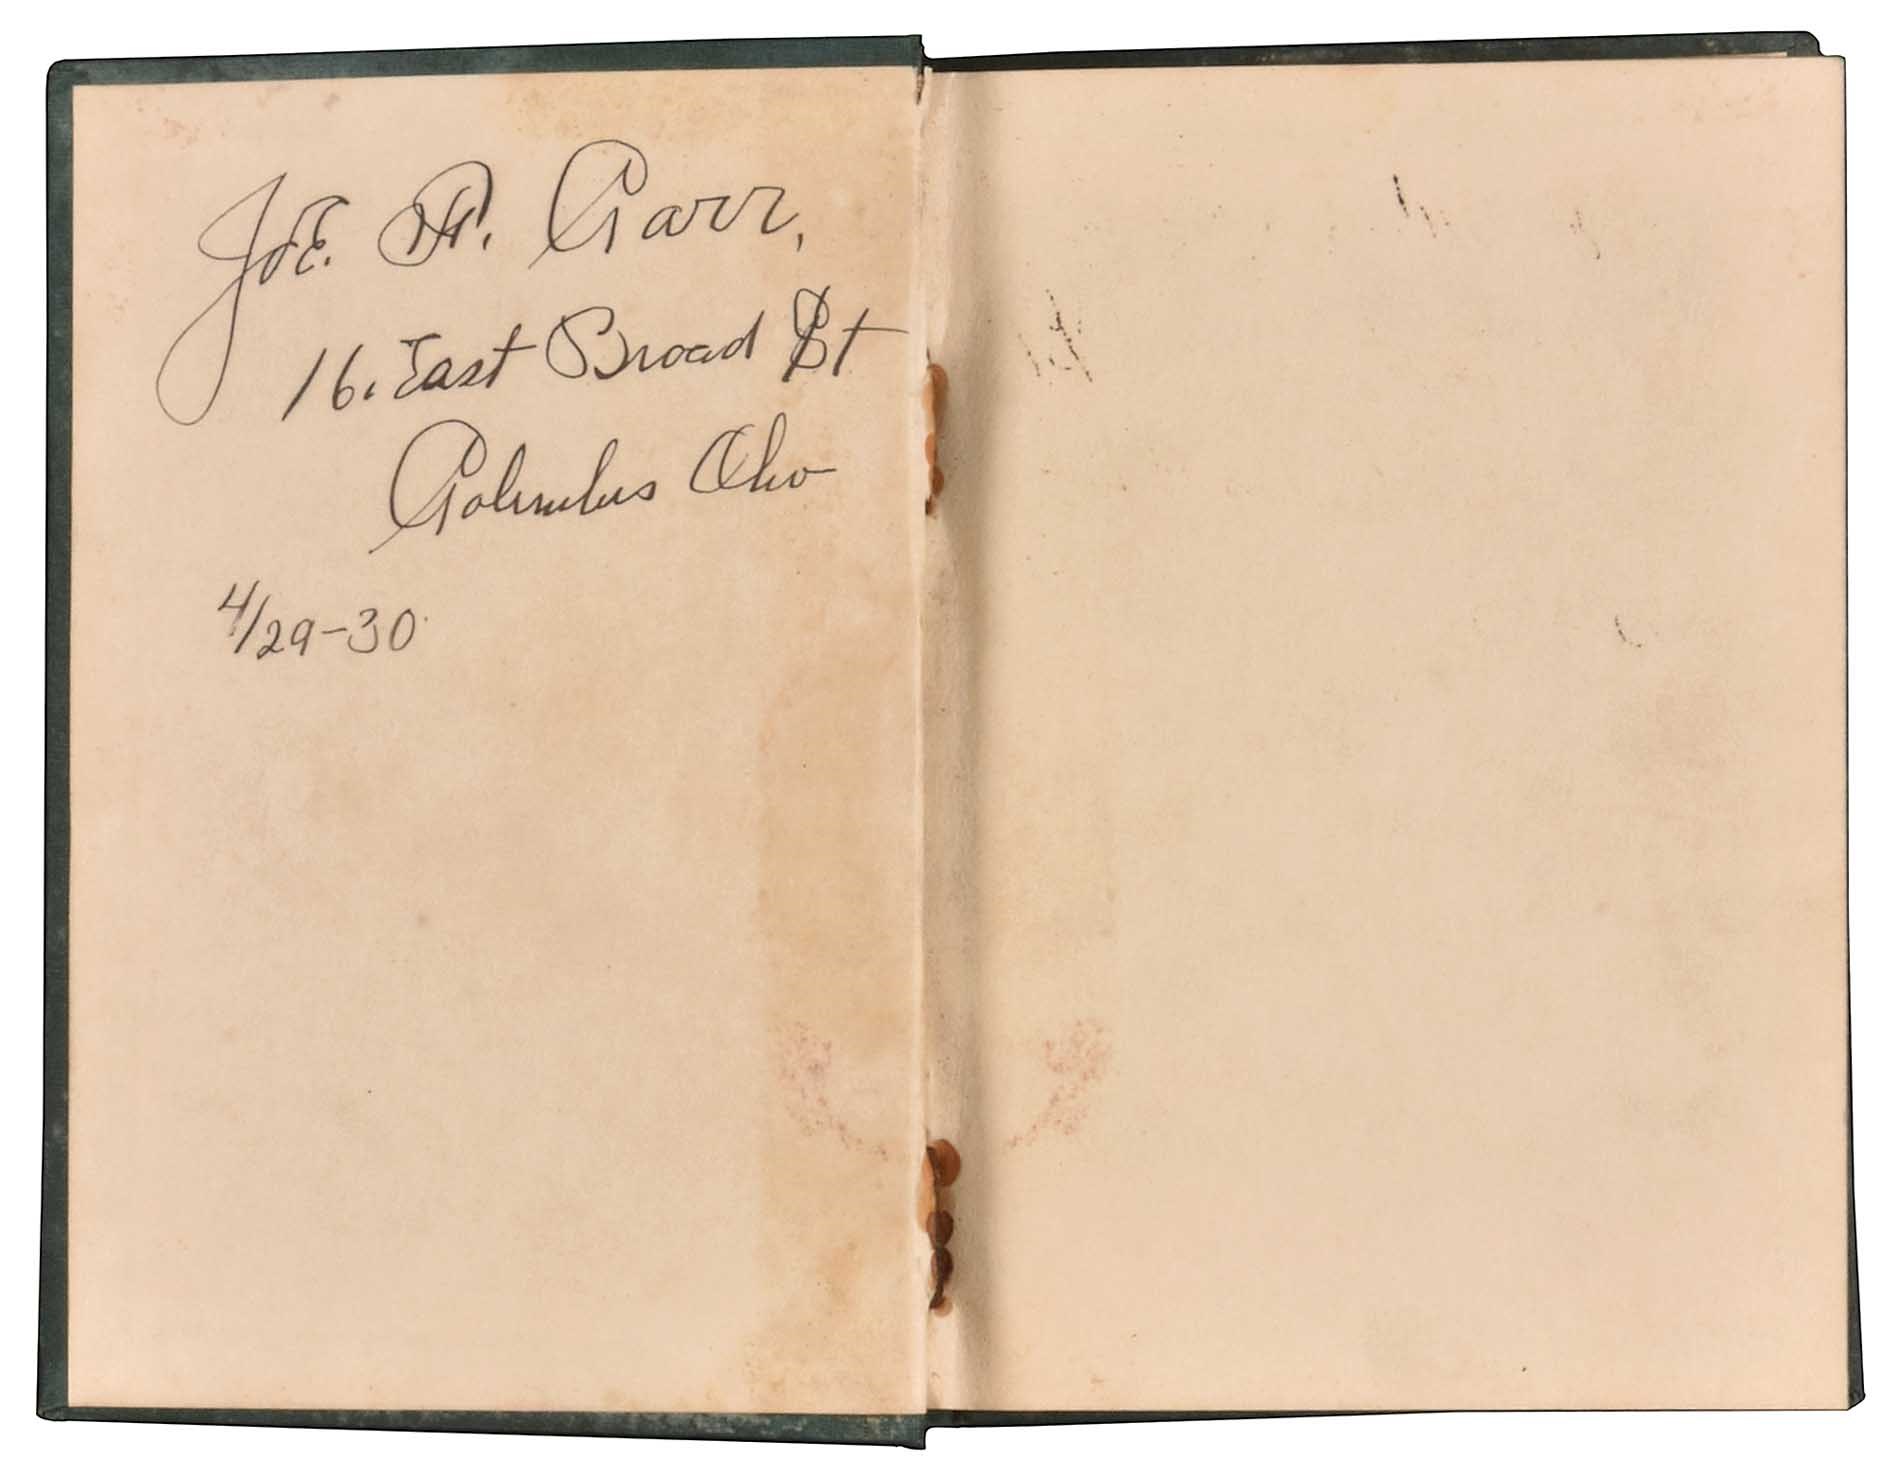 JoE. F. Carr,
16. East Broad St
Columbus Ohio
4/29-30